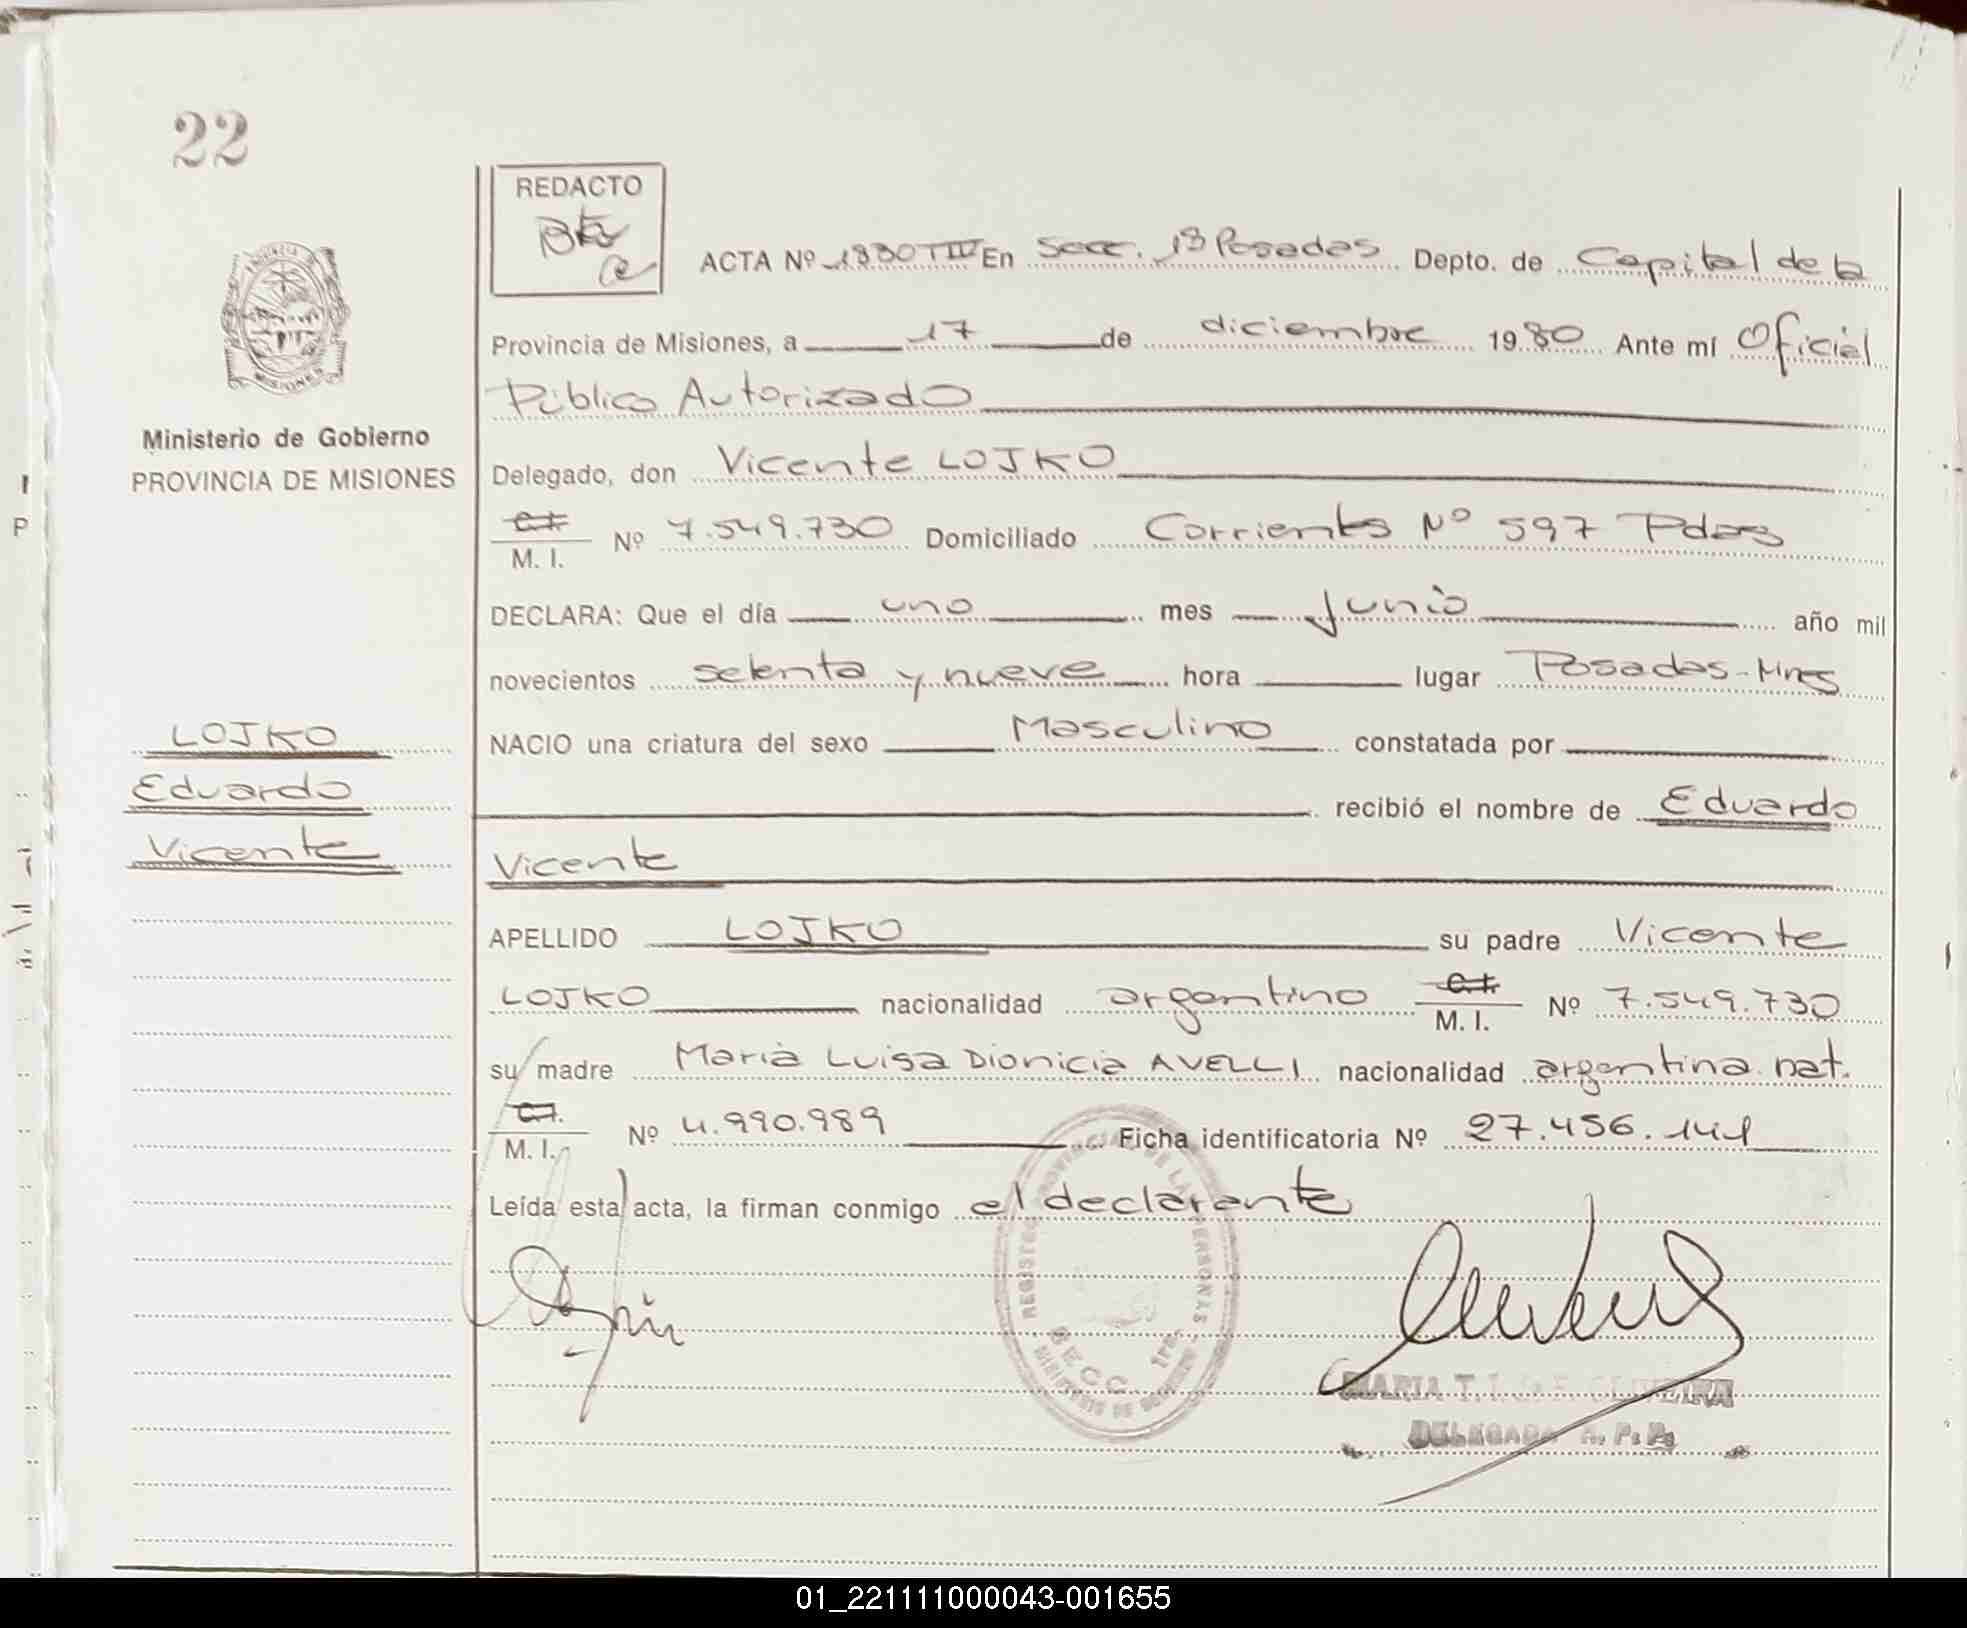 22
REDACTO
ACTA Nº 1330 TIV En Secc. 1ª Posadas Depto. de Capital de la
Provincia de Misiones, a 17 de diciembre 1980 Ante mí Oficial
Público Autorizado
Ministerio de Gobierno
PROVINCIA DE MISIONES
Delegado, don Vicente LOJKO
C.I.
M. I. Nº 7.549.730 Domiciliado Corrientes Nº 597 Pdas
DECLARA: Que el día uno mes Junio año mil
novecientos setenta y nueve hora lugar Posadas-Mnes
LOJKO
Eduardo
Vicente
NACIO una criatura del sexo Masculino constatada por
recibió el nombre de Eduardo
Vicente
APELLIDO LOJKO su padre Vicente
LOJKO nacionalidad argentino C.I. M. I. Nº 7.549.730
su madre María Luisa Dionicia AVELLI nacionalidad argentina nat.
C.I.
M. I. Nº 4.990.989 Ficha identificatoria Nº 27.456.141
Leída esta acta, la firman conmigo el declarante
REGISTRO PROVINCIAL DE LAS PERSONAS
SECC. 1ra.
MINISTERIO DE GOBIERNO
MARIA T. OLIVEIRA
DELEGADA R. P. P.
01_221111000043-001655